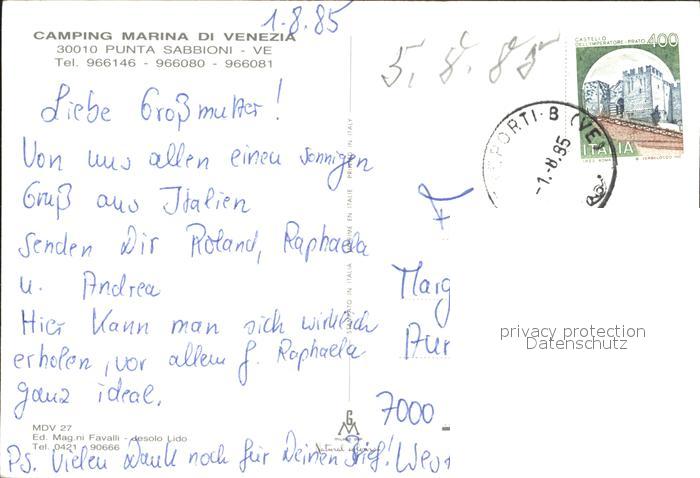 1.8.85
CAMPING MARINA DI VENEZIA
30010 PUNTA SABBIONI - VE
Tel. 966146 - 966080 - 966081
5.8.85
CASTELLO
DELL'IMPERATORE - PRATO
400
ITALIA
PORTI-B (VE)
-1.-8.85
Liebe Großmutter!
Von uns allen einen sonnigen
Gruß aus Italien
senden Dir Roland, Raphaela
u. Andrea
Hier kann man sich wirklich
erholen, vor allem f. Raphaela
ganz ideal.
PRINTED IN ITALY
F
Marg
privacy protection
Datenschutz
7000
MDV 27
Ed. Mag.ni Favalli - Jesolo Lido
Tel. 0421 - 90666
Ps. Vielen Dank noch für Deinen Brief!